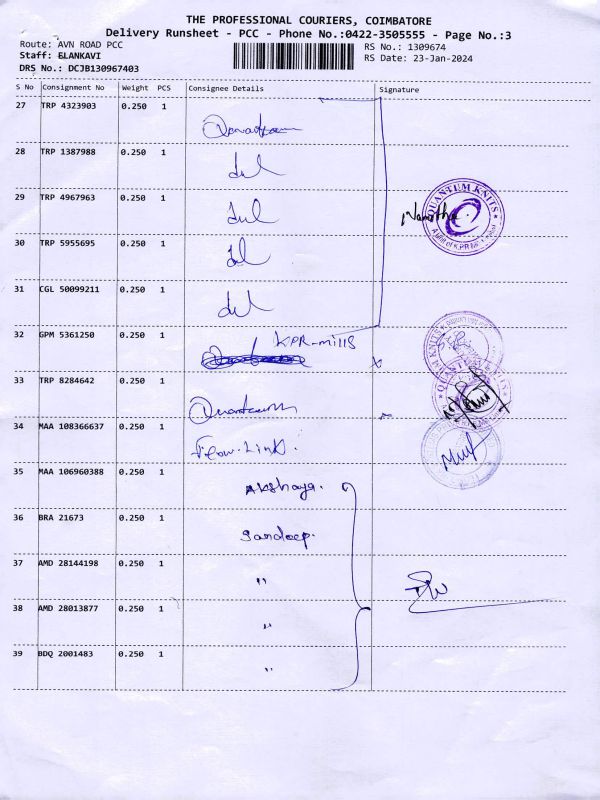 THE PROFESSIONAL COURIERS, COIMBATORE
Delivery Runsheet - PCC - Phone No.:0422-3505555 - Page No.:3
Route: AVN ROAD PCC
RS No.: 1309674
Staff: ELANKAVI
RS Date: 23-Jan-2024
DRS No.: DCJB130967403
S No Consignment No Weight PCS Consignee Details Signature
27 TRP 4323903 0.250 1
28 TRP 1387988 0.250 1
29 TRP 4967963 0.250 1
QUANTUM KNITS
30 TRP 5955695 0.250 1
31 CGL 50099211 0.250 1
32 GPM 5361250 0.250 1 KPR-mills
33 TRP 8284642 0.250 1
34 MAA 108366637 0.250 1 Flow-Link.
35 MAA 106960388 0.250 1 Akshaya.
36 BRA 21673 0.250 1 Sandeep.
37 AMD 28144198 0.250 1 "
38 AMD 28013877 0.250 1 "
39 BDQ 2001483 0.250 1 "